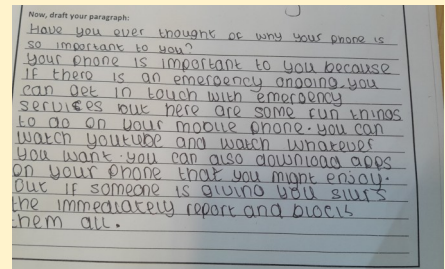 Now, draft your paragraph:
Have you ever thought of why your phone is
so important to you?
Your phone is important to you because
if there is an emergency ongoing. you
can get in touch with emergency
services but here are some fun things
to do on your mobile phone. you can
watch youtube and watch whatever
you want. you can also download apps
on your phone that you might enjoy.
but if someone is giving you slurs
the immediately report and block
them all.